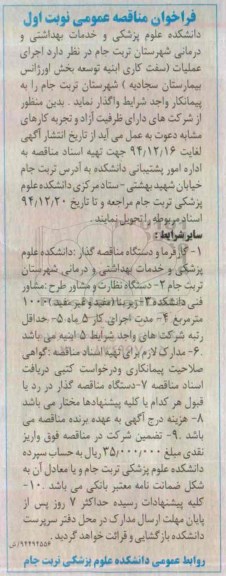 فراخوان مناقصه عمومی نوبت اول
دانشکده علوم پزشکی و خدمات بهداشتی و
درمانی شهرستان تربت جام در نظر دارد اجرای
عملیات (سفت کاری ابنیه توسعه بخش اورژانس
بیمارستان سجادیه ) شهرستان تربت جام را به
پیمانکار واجد شرایط واگذار نماید . بدین منظور
از شرکت های دارای ظرفیت آزاد و تجربه کارهای
مشابه دعوت به عمل می آید از تاریخ انتشار آگهی
لغایت ۹۴/۱۲/۱۶ جهت تهیه اسناد مناقصه به
اداره امور پشتیبانی دانشکده به آدرس تربت جام
خیابان شهید بهشتی - ستاد مرکزی دانشکده علوم
پزشکی تربت جام مراجعه و تا تاریخ ۹۴/۱۲/۲۰
اسناد مربوطه را تحویل نمایند .
سایر شرایط :
۱- کارفرما و دستگاه مناقصه گذار :دانشکده علوم
پزشکی و خدمات بهداشتی و درمانی شهرستان
تربت جام ۲- دستگاه نظارت و مشاور طرح :مشاور
فنی دانشکده ۳- زیربنا (مفید و غیر مفید) ۱۰۰۰
مترمربع ۴- مدت اجرای کار ۵ ماه ۵- حداقل
رتبه شرکت های واجد شرایط ۵ ابنیه می باشد
۶- مدارک لازم برای تهیه اسناد مناقصه :گواهی
صلاحیت پیمانکاری و درخواست کتبی دریافت
اسناد مناقصه ۷-دستگاه مناقصه گذار در رد یا
قبول هر کدام یا کلیه پیشنهادها مختار می باشد
۸- هزینه درج آگهی به عهده برنده مناقصه می
باشد .۹- تضمین شرکت در مناقصه فوق واریز
نقدی مبلغ ۳۵/۰۰۰/۰۰۰ریال به حساب سپرده
دانشکده علوم پزشکی تربت جام و یا معادل آن به
شکل ضمانت نامه معتبر بانکی می باشد .۱۰-
کلیه پیشنهادات رسیده حداکثر ۷ روز پس از
پایان مهلت ارسال مدارک در محل دفتر سرپرست
دانشکده بازگشایی و قرائت خواهد گردید
روابط عمومی دانشکده علوم پزشکی تربت جام